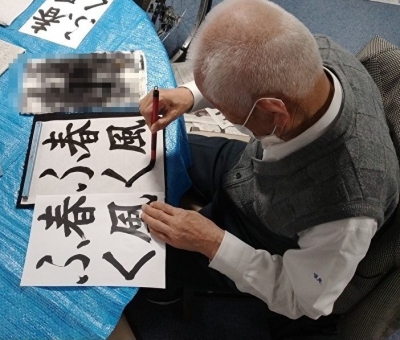 春風
ふく
春風
ふく